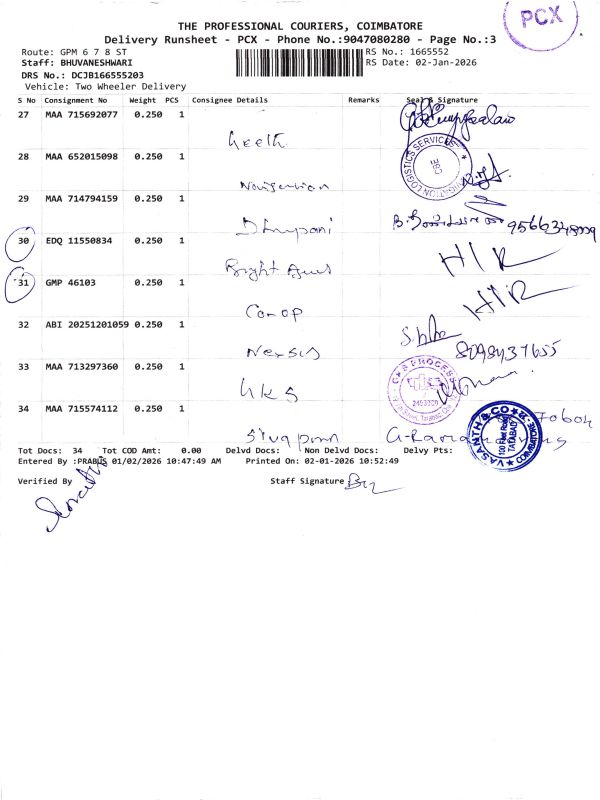 THE PROFESSIONAL COURIERS, COIMBATORE
PCX
Delivery Runsheet - PCX - Phone No.:9047080280 - Page No.:3
Route: GPM 6 7 8 ST
RS No.: 1665552
Staff: BHUVANESHWARI
RS Date: 02-Jan-2026
DRS No.: DCJB166555203
Vehicle: Two Wheeler Delivery
S No Consignment No Weight PCS Consignee Details Remarks Seal & Signature
27 MAA 715692077 0.250 1
Geeth
28 MAA 652015098 0.250 1
29 MAA 714794159 0.250 1
9566348999
30 EDQ 11550834 0.250 1
Bright
HIR
31 GMP 46103 0.250 1
Co-op
HIR
32 ABI 20251201059 0.250 1
8098437655
33 MAA 713297360 0.250 1
34 MAA 715574112 0.250 1
VASANTH & CO
COIMBATORE
TATABAD
Tot Docs: 34 Tot COD Amt: 0.00 Delvd Docs: Non Delvd Docs: Delvy Pts:
Entered By :PRABUS 01/02/2026 10:47:49 AM Printed On: 02-01-2026 10:52:49
Verified By
Staff Signature